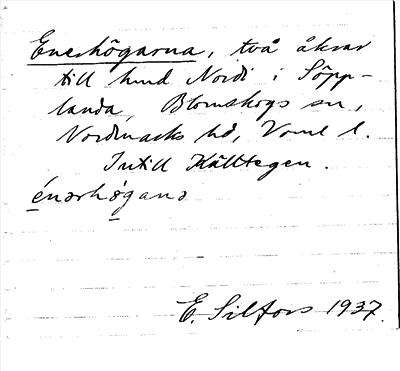 Enerhögarna, två åkrar
till hmd Nordi i Söpp-
landa, Blomskogs sn,
Nordmarks hd, Vrml l.
Intill Källtegen.
énərhǫ́ganə
E. Silfors 1937.